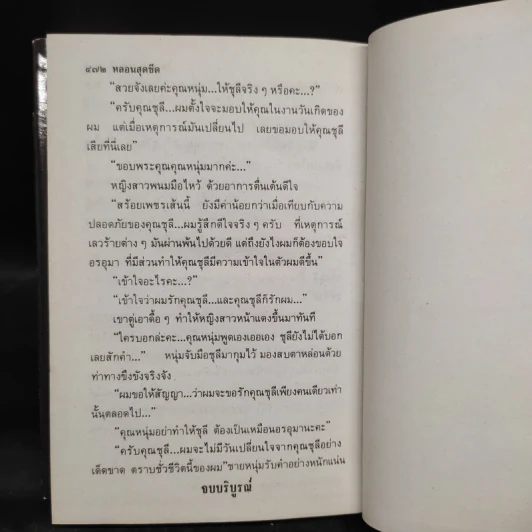 ๔๗๒ หลอนสุดขีด
“สวยจังเลยค่ะคุณหนุ่ม...ให้ชุลีจริง ๆ หรือคะ...?”
“ครับคุณชุลี...ผมตั้งใจจะมอบให้คุณในงานวันเกิดของ
ผม แต่เมื่อเหตุการณ์มันเปลี่ยนไป เลยขอมอบให้คุณชุลี
เสียที่นี่เลย”
“ขอบพระคุณคุณหนุ่มมากค่ะ...”
หญิงสาวพนมมือไหว้ ด้วยอาการตื่นเต้นดีใจ
“สร้อยเพชรเส้นนี้ ยังมีค่าน้อยกว่าเมื่อเทียบกับความ
ปลอดภัยของคุณชุลี...ผมรู้สึกดีใจจริง ๆ ครับ ที่เหตุการณ์
เลวร้ายต่าง ๆ มันผ่านพ้นไปด้วยดี แต่ถึงยังไงผมก็ต้องขอบใจ
อรอุมา ที่มีส่วนทำให้คุณชุลีมีความเข้าใจในตัวผมดีขึ้น”
“เข้าใจอะไรคะ...?”
“เข้าใจว่าผมรักคุณชุลี...และคุณชุลีก็รักผม...”
เขาตู่เอาดื้อ ๆ ทำให้หญิงสาวหน้าแดงขึ้นมาทันที
“ใครบอกล่ะคะ...คุณหนุ่มพูดเองเออเอง ชุลียังไม่ได้บอก
เลยสักคำ...” หนุ่มจับมือชุลีมากุมไว้ มองสบตาหล่อนด้วย
ท่าทางขึงขังจริงจัง
“ผมขอให้สัญญา...ว่าผมจะขอรักคุณชุลีเพียงคนเดียวเท่า
นั้นตลอดไป...”
“คุณหนุ่มอย่าทำให้ชุลี ต้องเป็นเหมือนอรอุมานะคะ”
“ครับคุณชุลี...ผมจะไม่มีวันเปลี่ยนใจจากคุณชุลีอย่าง
เด็ดขาด ตราบชั่วชีวิตนี้ของผม”ชายหนุ่มรับคำอย่างหนักแน่น
จบบริบูรณ์